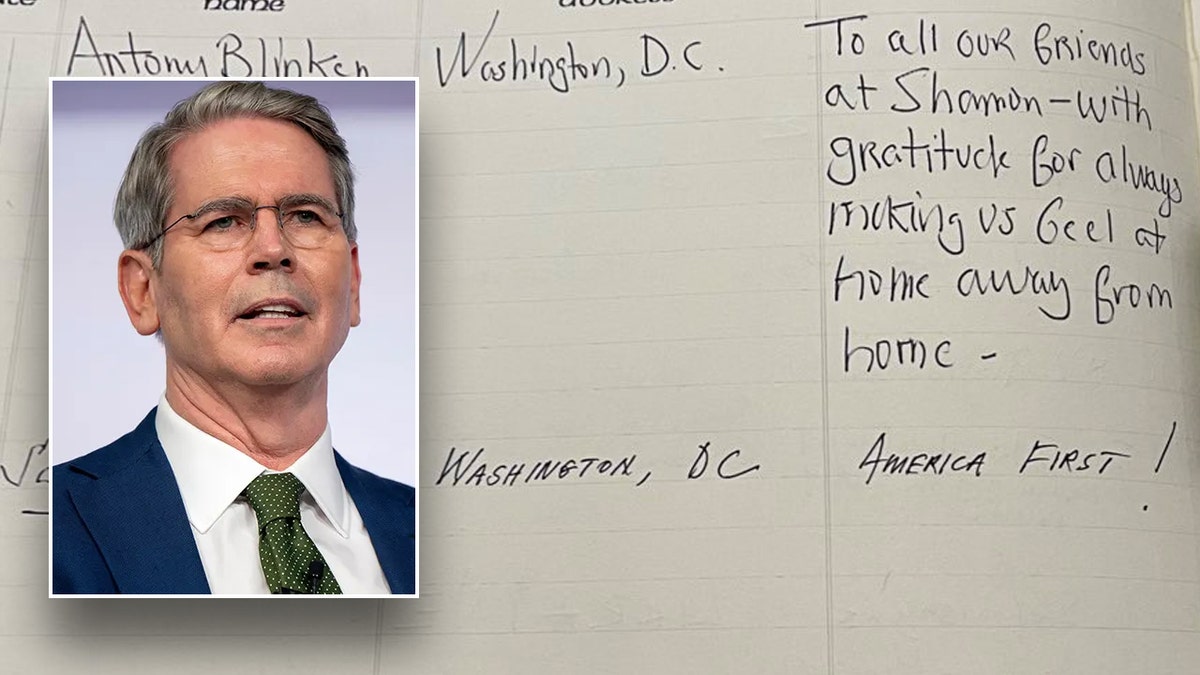 name
address
Antony Blinken
Washington, D.C.
To all our friends
at Shannon - with
gratitude for always
making us feel at
home away from
home -
WASHINGTON, DC
AMERICA FIRST!